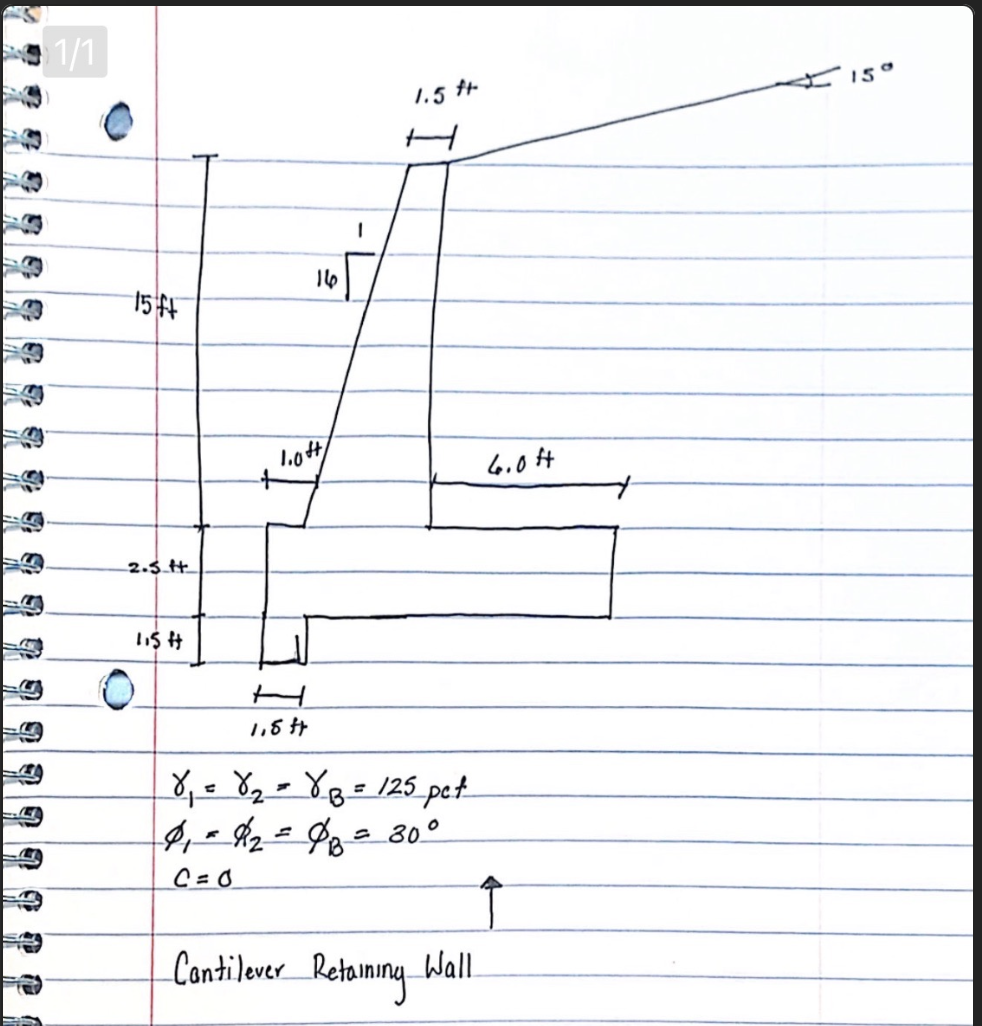 1/1
1.5 ft
15°
1
16
15 ft
1.0 ft
6.0 ft
2.5 ft
1.5 ft
1.5 ft
γ₁ = γ₂ = γ_B = 125 pcf
ϕ₁ = ϕ₂ = ϕ_B = 30°
C = 0
Cantilever Retaining Wall